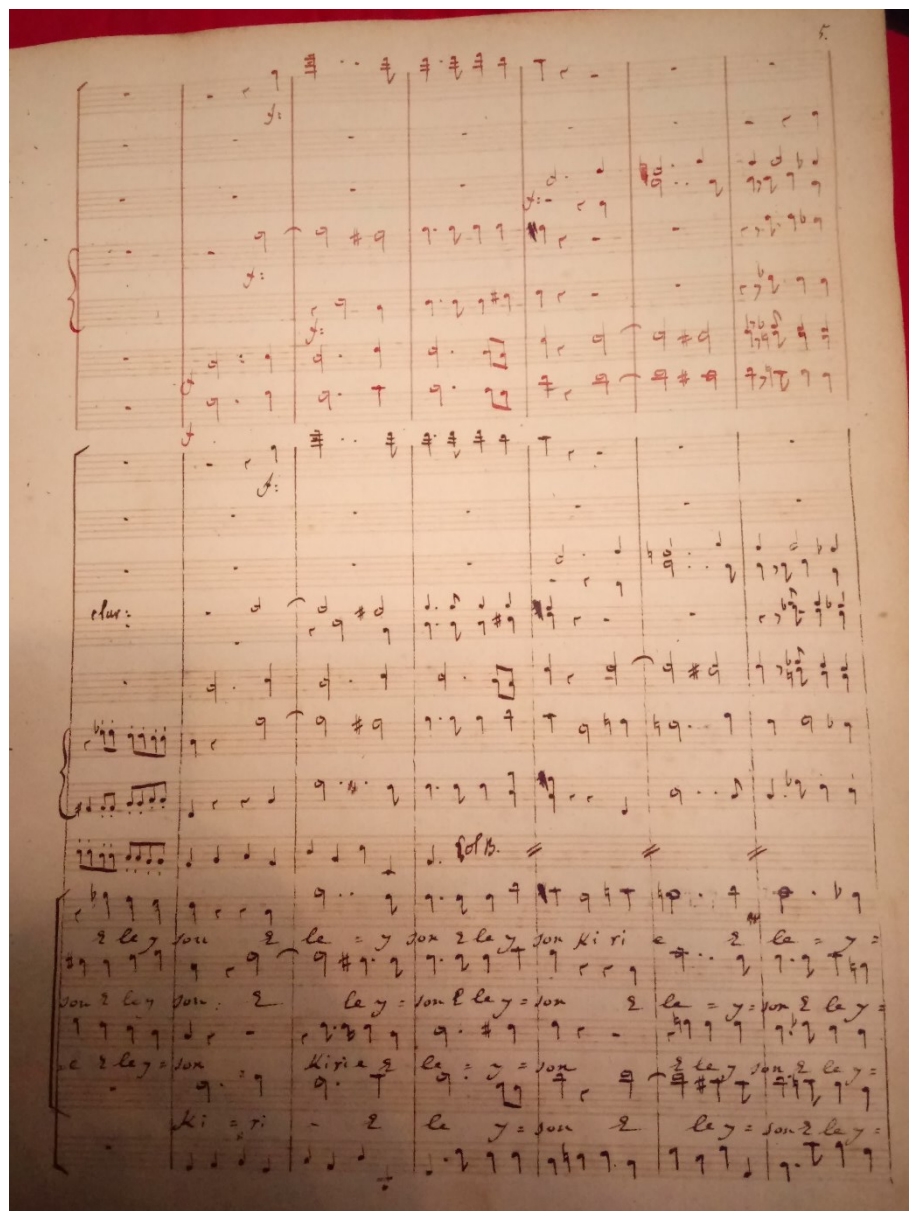 5.
f:
f:
f:
f:
f
f.
f:
clar:
Col B.
E le y son E le = y son E le y son Ki ri e E le = y =
son E le y son. E le y = son E le y = son E le = y = son E le y =
e E le y = son Kirie E le = y = son E le y son E le y =
Ki = ri - E le y = son E le y = son E le y =